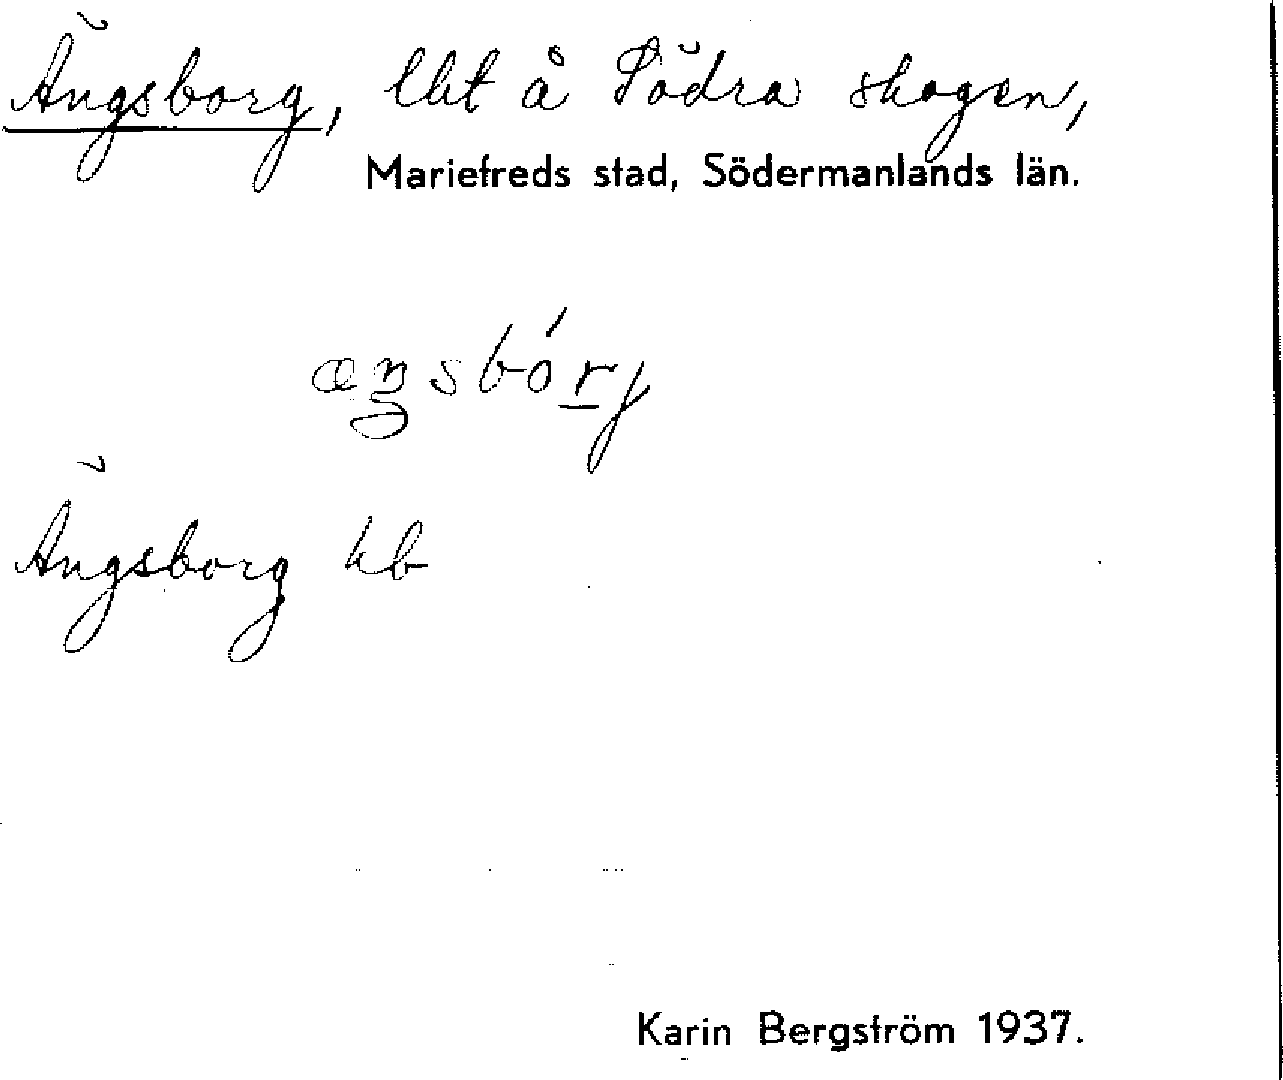 Ängsborg, lht å Södra skogen,
Mariefreds stad, Södermanlands län.
Ängsborg hb
Karin Bergström 1937.